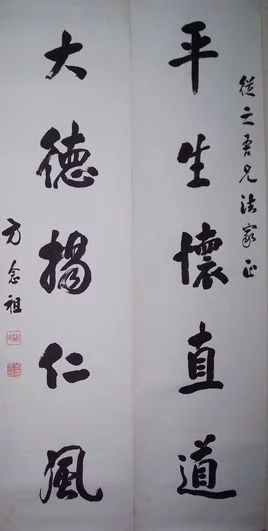 從之吾兄法家正
平生懷直道
大德揚仁風
方念祖